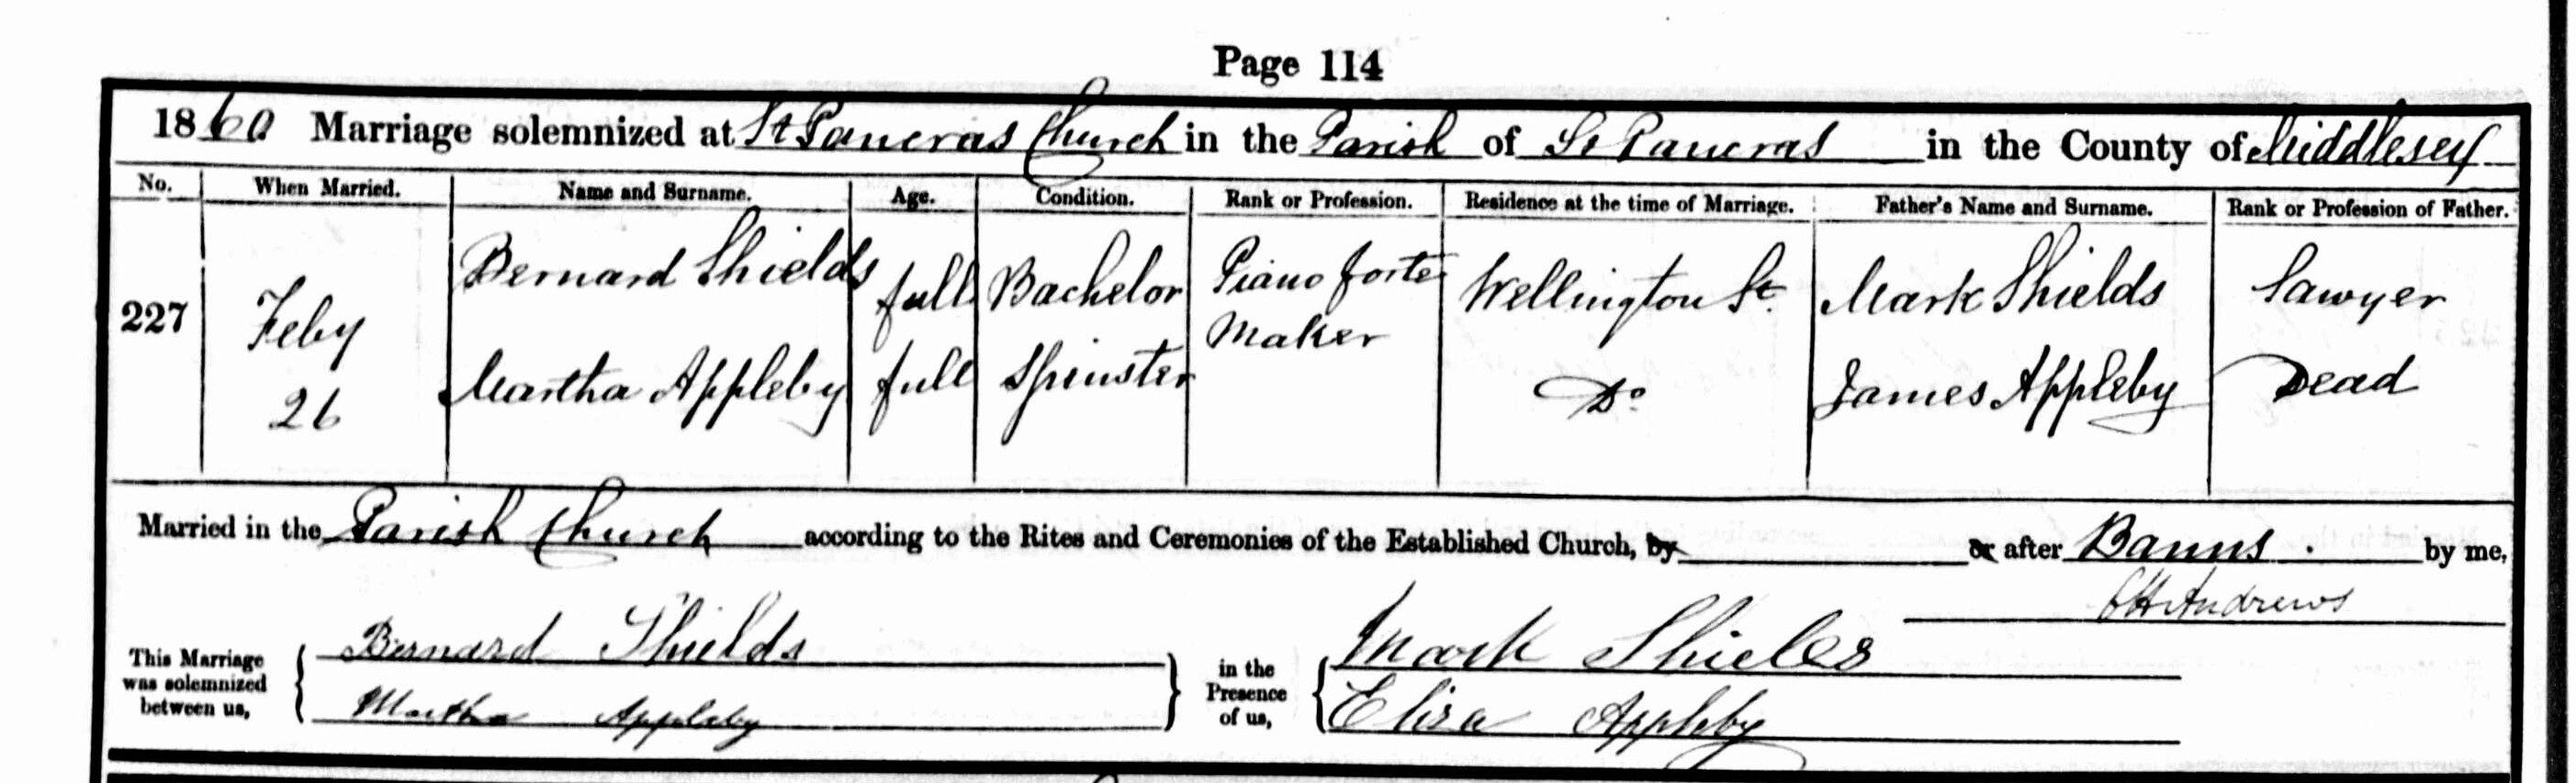 Page 114
1860 Marriage solemnized at St Pancras Church in the Parish of St Pancras in the County of Middlesex
No. When Married. Name and Surname. Age. Condition. Rank or Profession. Residence at the time of Marriage. Father's Name and Surname. Rank or Profession of Father.
227 Feby 26
Bernard Shields full Bachelor Piano forte Maker Wellington St. Mark Shields Sawyer
Martha Appleby full Spinster Do James Appleby Dead
Married in the Parish Church according to the Rites and Ceremonies of the Established Church, by or after Banns. by me,
Andrews
This Marriage was solemnized between us,
Bernard Shields
Martha Appleby
in the Presence of us,
Mark Shields
Eliza Appleby